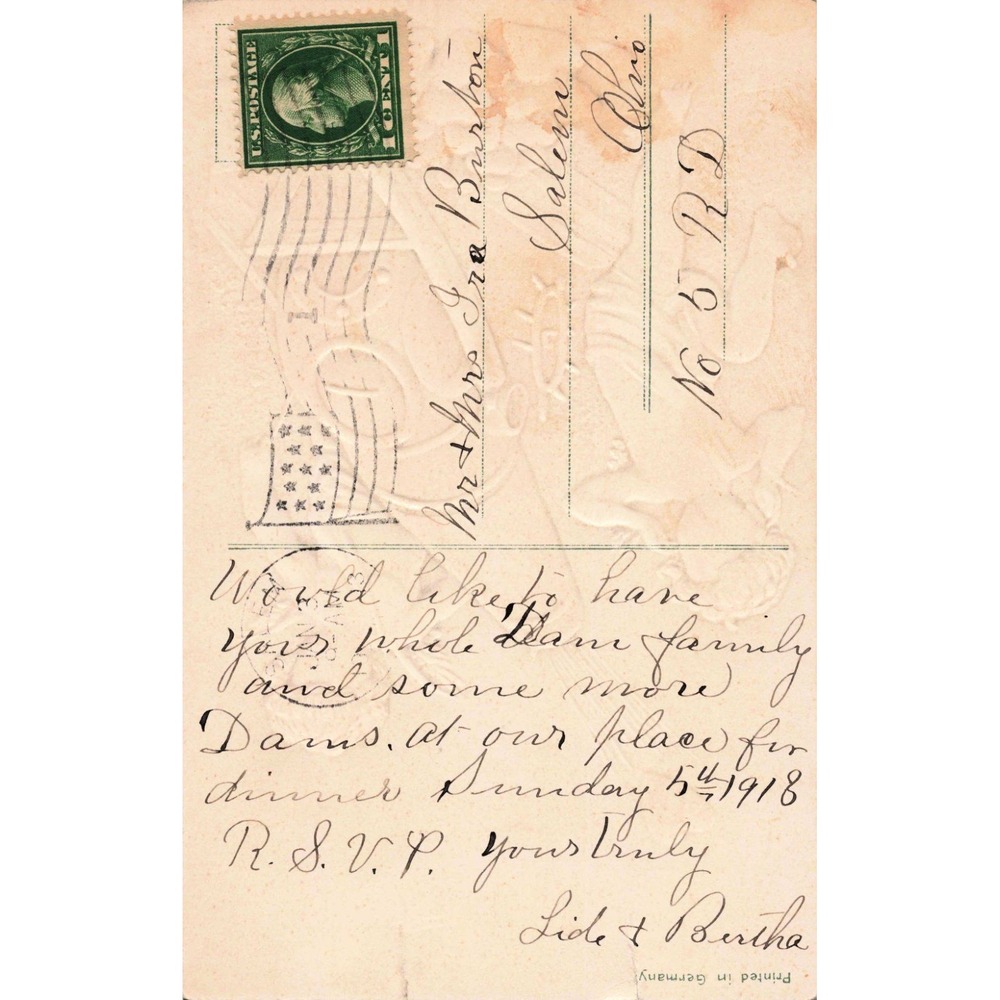 U.S.POSTAGE
1 CENT 1
Mr & Mrs Ira Burton
Salem
Ohio
No 5 R D
Would like to have
your whole Dam family
and some more
Dams. at our place for
dinner Sunday 5th 1918
R. S. V. P. yours truly
Lide & Bertha
Printed in Germany